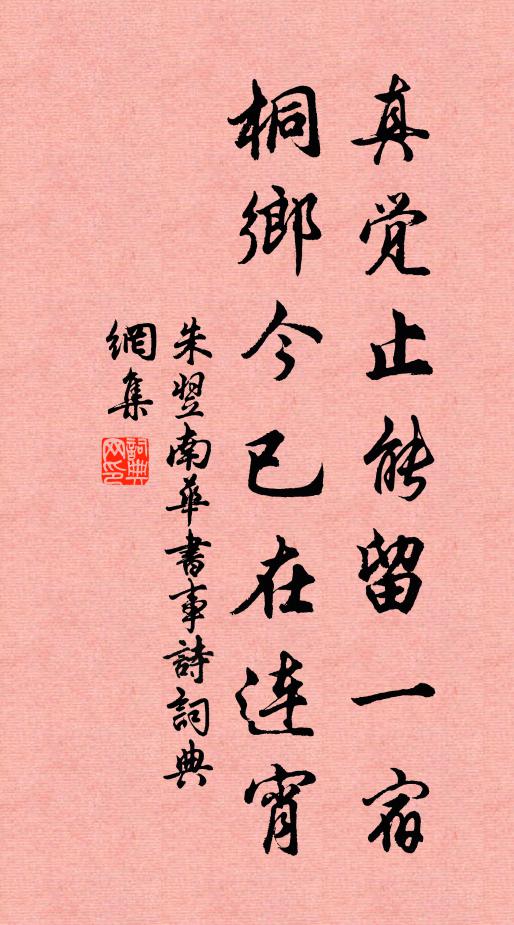 真觉止能留一宿
桐鄉今已在連宵
朱翌南華書事詩詞典
網集
詞典網印